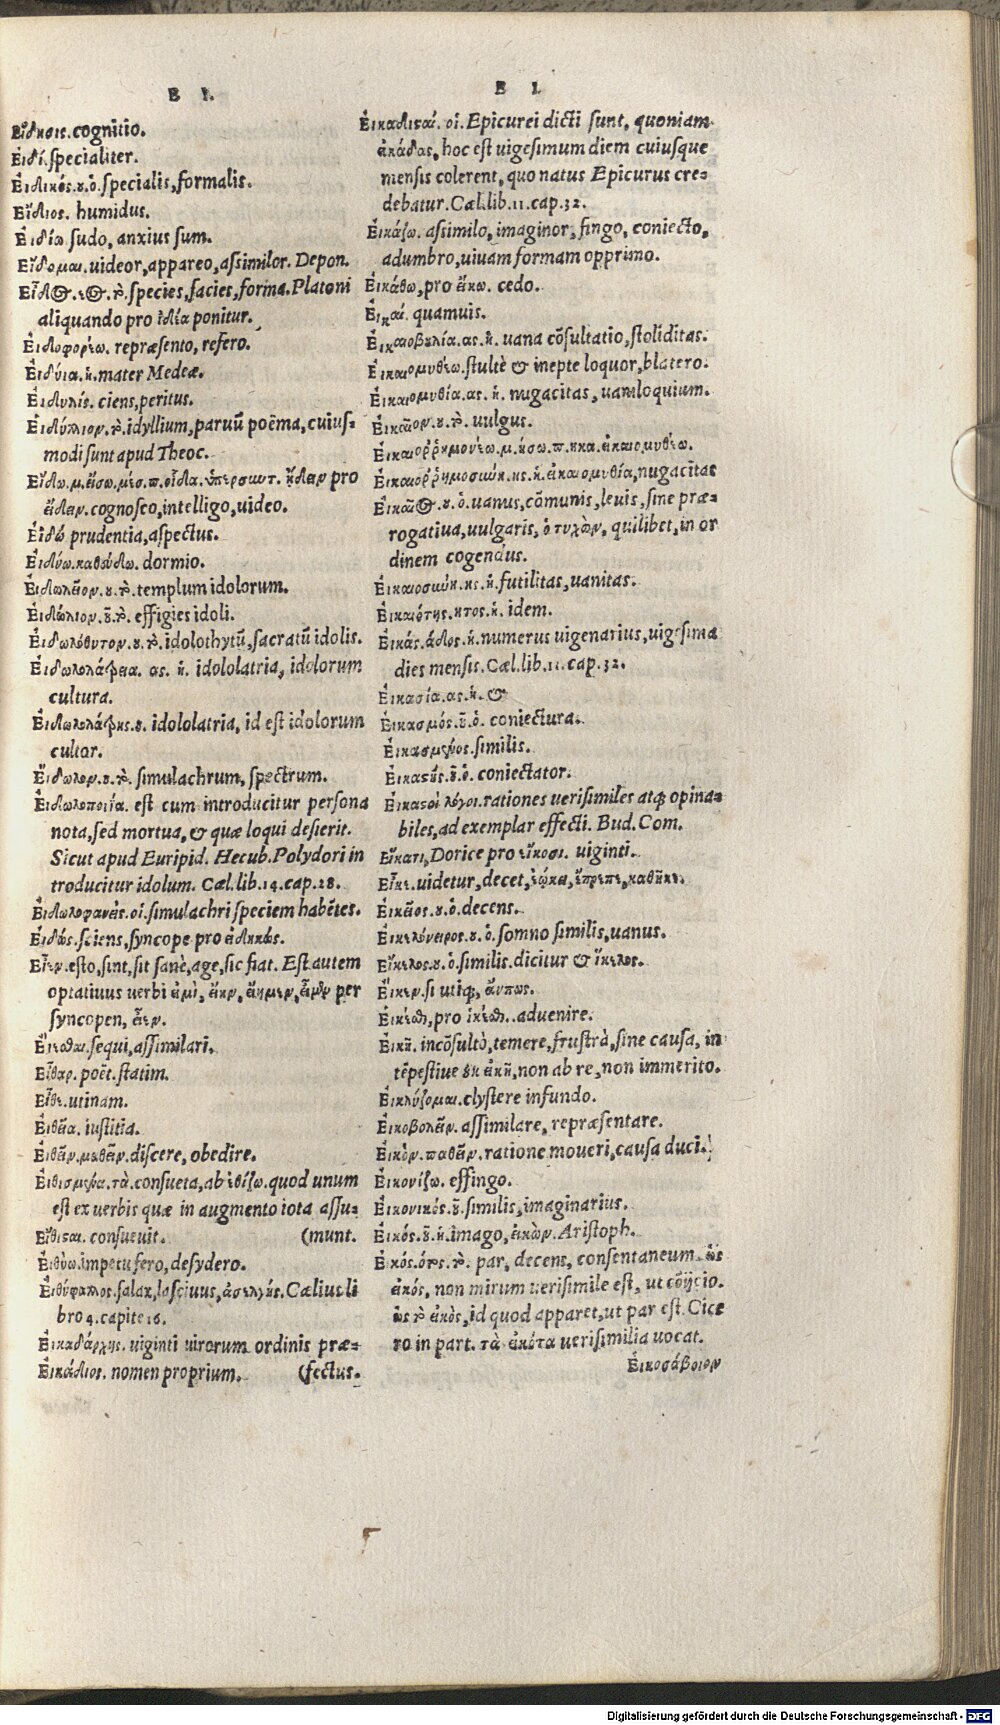 E I.
Εἴδησις. cognitio.
Εἰδί. specialiter.
Εἰδικός. ȣ. ὁ. specialis, formalis.
Εἴδιος. humidus.
Εἰδίω sudo, anxius sum.
Εἴδομαι. uideor, appareo, assimilor. Depon.
Εἶδος. εος. τὸ. species, facies, forma. Platoni
aliquando pro ἰδέα ponitur.
Εἰδοφορέω. repræsento, refero.
Εἰδύια. ἡ. mater Medeæ.
Εἰδυλίς. ciens, peritus.
Εἰδύλλιον. τὸ. idyllium, paruū poëma, cuius-
modi sunt apud Theoc.
Εἴδω. μ. εἴσω. μέσ. π. οἶδα. ὑπερσωτ. ᾔδειν pro
εἴδειν. cognosco, intelligo, uideo.
Εἰδώ. prudentia, aspectus.
Εἰδύω. καθεύδω. dormio.
Εἰδωλεῖον. ȣ. τὸ. templum idolorum.
Εἰδώλιον. ȣ. τὸ. effigies idoli.
Εἰδωλόθυτον. ȣ. τὸ. idolothytū, sacratū idolis.
Εἰδωλολάτρεια. ας. ἡ. idololatria, idolorum
cultura.
Εἰδωλολάτρης. ȣ. idololatria, id est idolorum
cultor.
Εἴδωλον. ȣ. τὸ. simulachrum, spectrum.
Εἰδωλοποιΐα. est cum introducitur persona
nota, sed mortua, & quæ loqui desierit.
Sicut apud Euripid. Hecub. Polydori in
troducitur idolum. Cæl. lib. 14. cap. 28.
Εἰδωλοφανεῖς. οἱ. simulachri speciem habētes.
Εἰδώς. sciens, syncope pro εἰδηκώς.
Εἶεν. esto, sint, sit sanè, age, sic fiat. Est autem
optatiuus uerbi εἰμὶ, εἴην, εἴημεν, εἶμεν per
syncopen, εἶεν.
Εἴεσθαι. sequi, assimilari.
Εἶθαρ. poët. statim.
Εἶθε. utinam.
Εἰθεῖα. iustitia.
Εἰθεῖν. μαθεῖν. discere, obedire.
Εἰθισμένα. τὰ. consueta, ab ἐθίζω. quod unum
est ex uerbis quæ in augmento iota assu-
Εἴθισαι. consueuit. (munt.
Εἰθύω. impetu fero, desydero.
Εἰθύφαλλος. salax, lasciuus, ἀσελγής. Cælius li
bro 4. capite 16.
Εἰκαδάρχης. uiginti uirorum ordinis præ-
Εἰκάδιος. nomen proprium. (fectus.
E I.
Εἰκαδισταί. οἱ. Epicurei dicti sunt, quoniam
εἰκάδας, hoc est uigesimum diem cuiusque
mensis colerent, quo natus Epicurus cre-
debatur. Cæl. lib. 11. cap. 32.
Εἰκάζω. assimilo, imaginor, fingo, coniecto,
adumbro, uiuam formam opprimo.
Εἰκάθω, pro εἴκω. cedo.
Εἰκαί. quamuis.
Εἰκαιοβȣλία. ας. ἡ. uana cōsultatio, stoliditas.
Εἰκαιομυθέω. stultè & inepte loquor, blatero.
Εἰκαιομυθία. ας. ἡ. nugacitas, uaniloquium.
Εἰκαῖον. ȣ. τὸ. uulgus.
Εἰκαιορρημονέω. μ. ήσω. π. ηκα. εἰκαιομυθέω.
Εἰκαιορρημοσύνη. ης. ἡ. εἰκαιομυθία, nugacitas
Εἰκαῖος. ȣ. ὁ. uanus, cōmunis, leuis, sine præ-
rogatiua, uulgaris, ὁ τυχὼν, quilibet, in or
dinem cogendus.
Εἰκαιοσύνη. ης. ἡ. futilitas, uanitas.
Εἰκαιότης. ητος. ἡ. idem.
Εἰκάς. άδος. ἡ. numerus uigenarius, uigesima
dies mensis. Cæl. lib. 11. cap. 32.
Εἰκασία. ας. ἡ. &
Εἰκασμός. ȣ̃. ὁ. coniectura.
Εἰκασμένος. similis.
Εἰκαστής. ȣ̃. ὁ. coniectator.
Εἰκαστοὶ λόγοι. rationes uerisimiles atq; opina-
biles, ad exemplar effecti. Bud. Com.
Εἴκατι, Dorice pro εἴκοσι. uiginti.
Εἶκε. uidetur, decet, ἐῴκει, ἔπρεπε, καθῆκε.
Εἰκεῖος. ȣ. ὁ. decens.
Εἰκελόνειρος. ȣ. ὁ. somno similis, uanus.
Εἴκελος. ȣ. ὁ. similis. dicitur & ἴκελος.
Εἴκεν. si utiq;, ἄνπως.
Εἰκέσθαι, pro ἱκέσθαι. aduenire.
Εἰκῆ. incōsultò, temere, frustrà, sine causa, in
tēpestiue ȣ̓κ εἰκῆ, non ab re, non immerito.
Εἰκλύζομαι. clystere infundo.
Εἰκοβολεῖν. assimilare, repræsentare.
Εἰκὸν. παθεῖν. ratione moueri, causa duci.
Εἰκονίζω. effingo.
Εἰκονικός. ȣ̃. similis, imaginarius.
Εἰκός. ȣ̃. ἡ. imago, εἰκὼν. Aristoph.
Εἰκός. ότος. τὸ. par, decens, consentaneum. ὡς
εἰκός, non mirum uerisimile est, ut cōijcio.
ὡς τὸ εἰκὸς, id quod apparet, ut par est. Cice
ro in part. τὰ εἰκότα uerisimilia uocat.
Εἰκοσάβοιον
Digitalisierung gefördert durch die Deutsche Forschungsgemeinschaft - DFG